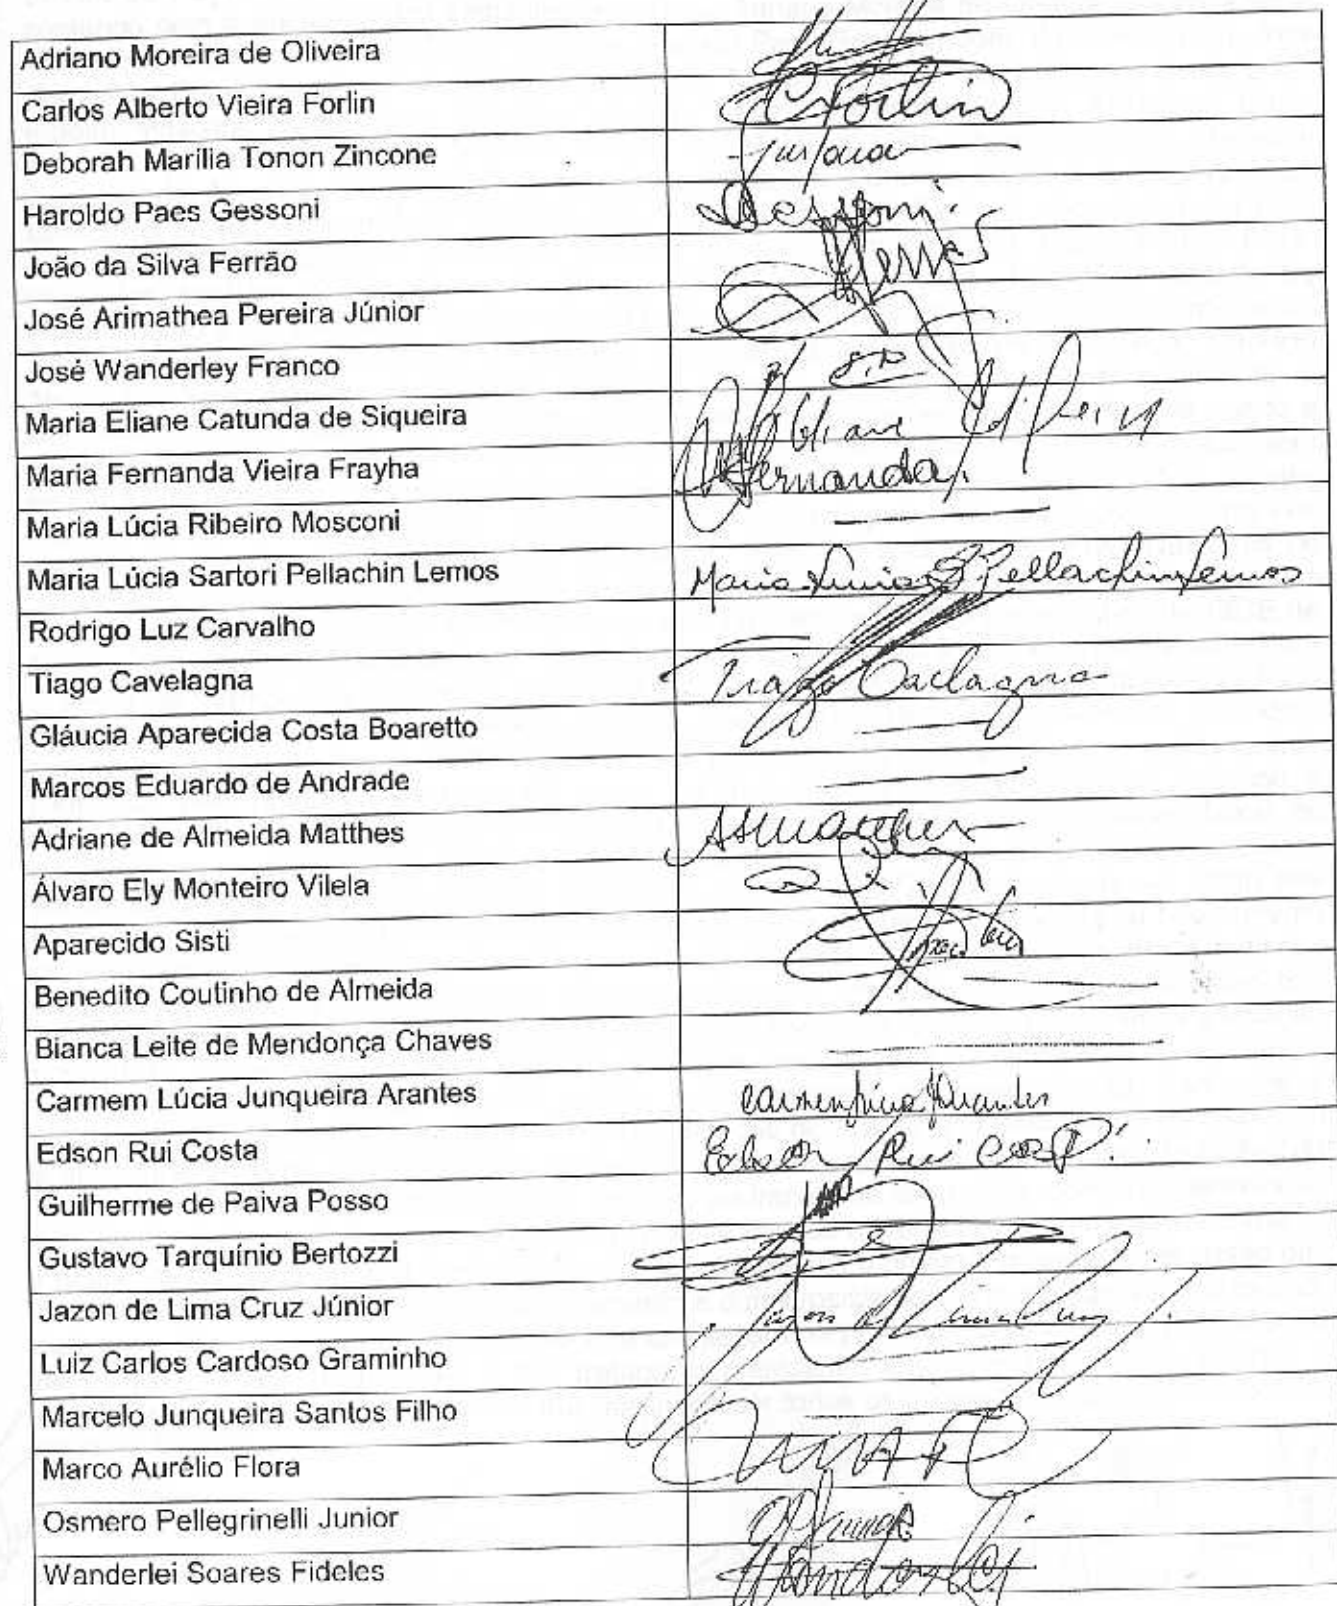 Adriano Moreira de Oliveira
Carlos Alberto Vieira Forlin CForlin
Deborah Marília Tonon Zincone
Haroldo Paes Gessoni
João da Silva Ferrão
José Arimathea Pereira Júnior
José Wanderley Franco
Maria Eliane Catunda de Siqueira
Maria Fernanda Vieira Frayha Fernanda
Maria Lúcia Ribeiro Mosconi
Maria Lúcia Sartori Pellachin Lemos Maria Lucia S Pellachin Lemos
Rodrigo Luz Carvalho
Tiago Cavelagna Tiago Cavelagna
Gláucia Aparecida Costa Boaretto
Marcos Eduardo de Andrade
Adriane de Almeida Matthes
Álvaro Ely Monteiro Vilela
Aparecido Sisti
Benedito Coutinho de Almeida
Bianca Leite de Mendonça Chaves
Carmem Lúcia Junqueira Arantes
Edson Rui Costa Edson Rui Costa
Guilherme de Paiva Posso
Gustavo Tarquínio Bertozzi
Jazon de Lima Cruz Júnior
Luiz Carlos Cardoso Graminho
Marcelo Junqueira Santos Filho
Marco Aurélio Flora
Osmero Pellegrinelli Junior
Wanderlei Soares Fideles Wanderlei